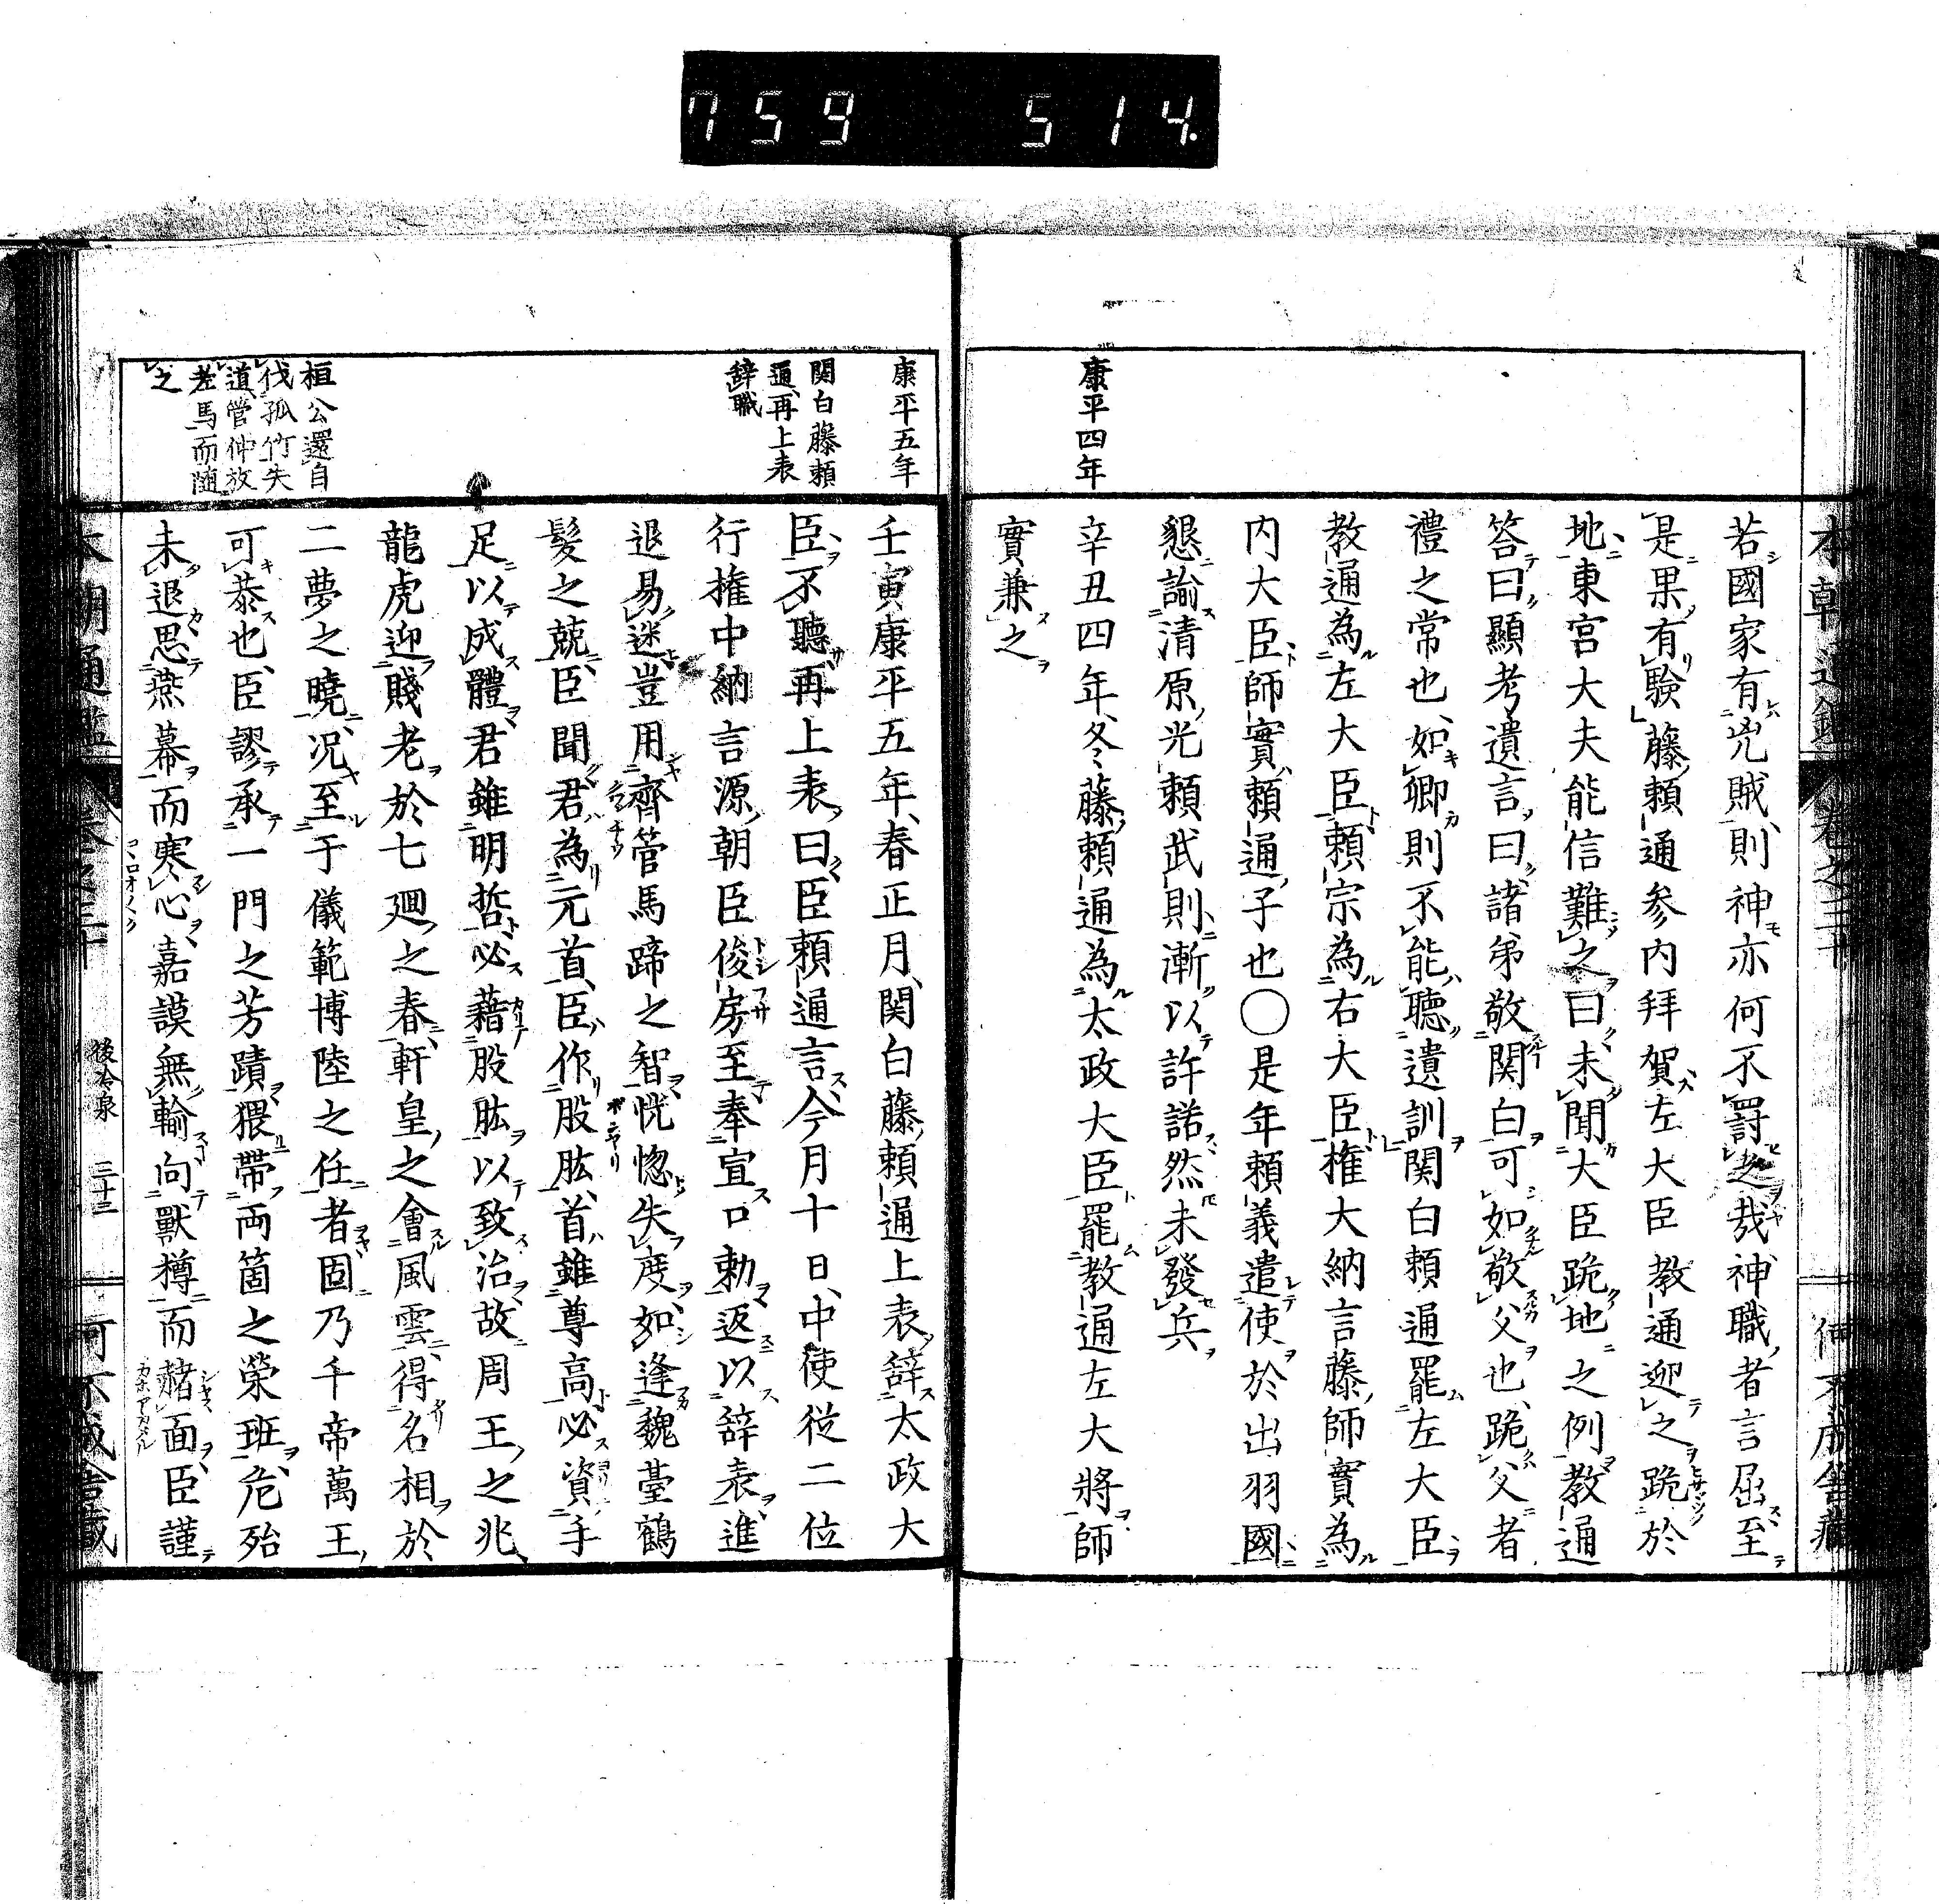 759 514
本朝通鑑 卷之二十
若國家有兇賊則神亦何不罸之哉神職者言屈至
是果有驗藤頼通参内拜賀左大臣教通迎之跪於
地東宮大夫能信難之曰未聞大臣跪地之例教通
答曰顯考遺言曰諸弟敬関白可如敬父也跪父者
禮之常也如卿則不能聽遺訓関白頼通罷左大臣
教通為左大臣頼宗為右大臣権大納言藤師實為
内大臣師實頼通子也〇是年頼義遣使於出羽國
懇諭清原光頼武則漸以許諾然未發兵
康平四年
辛丑四年冬藤頼通為太政大臣罷教通左大將師
實兼之
康平五年
壬寅康平五年春正月関白藤頼通上表辞太政大
関白藤頼
通再上表
辞職
臣不聽再上表曰臣頼通言今月十日中使従二位
行権中納言源朝臣俊房至奉宣口勅返以辞表進
退易迷豈用齊管馬蹄之智恍惚失度如逢魏臺鶴
髮之兢臣聞君為元首臣作股肱首雖尊高必資手
足以成體君雖明哲必藉股肱以致治故周王之兆
龍虎迎賤老於七廻之春軒皇之會風雲得名相於
二夢之曉况至于儀範博陸之任者固乃千帝萬王
可恭也臣謬承一門之芳蹟猥帶両箇之榮班危殆
桓公還自
伐孤竹失
道管仲放
老馬而随
之
未退思燕幕而寒心嘉謨無輸向獸樽而赭面臣謹
後冷泉 三十三